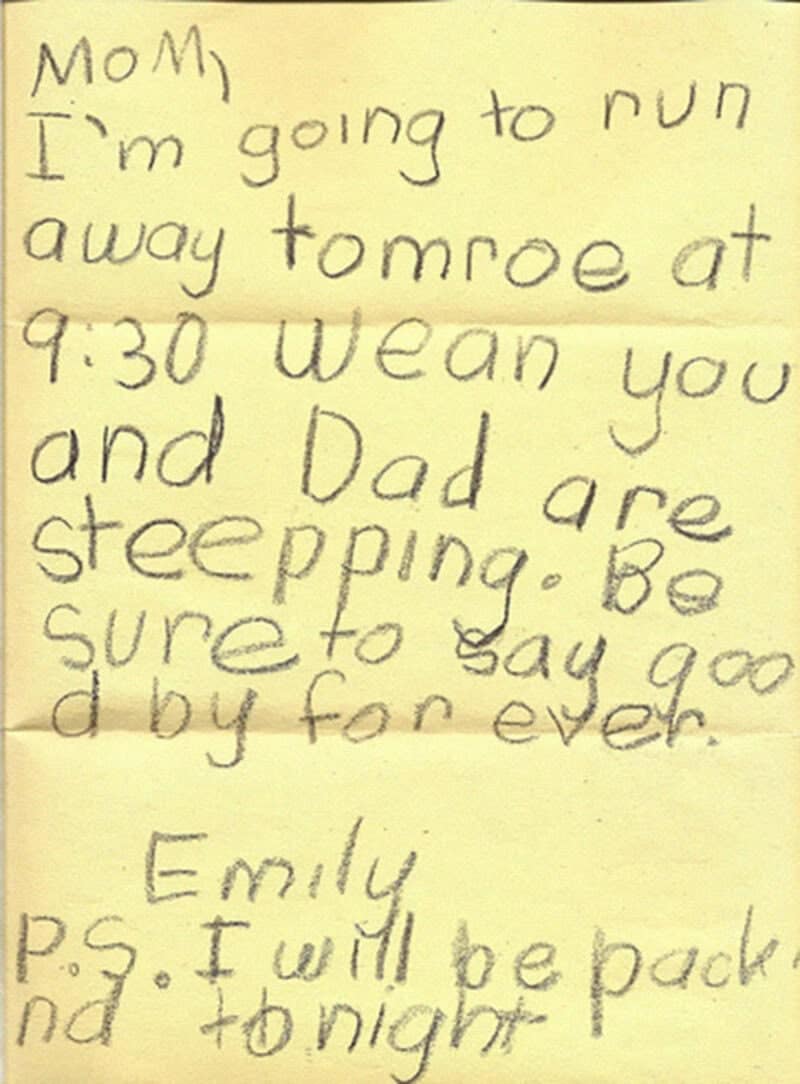 MOM,
I'm going to run
away tomroe at
9:30 wean you
and Dad are
steepping. Be
sure to say goo
d by for ever.
Emily
P.S. I will be pack
nd tonight